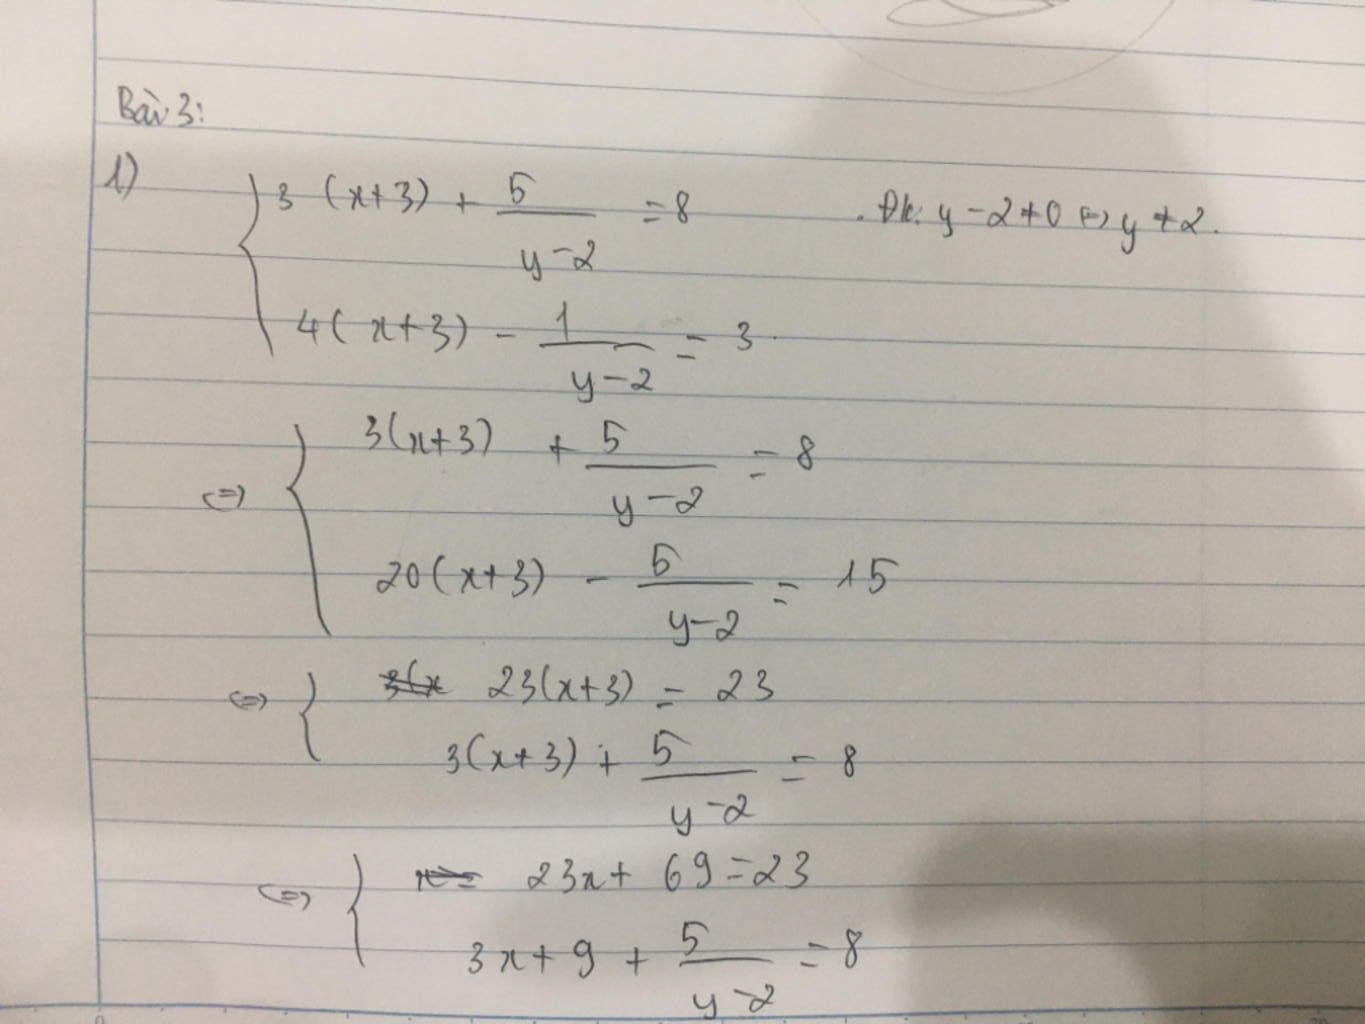 Bài 3:
1)
3 (x+3) + 5/(y-2) = 8 . Đk: y-2≠0 ⇔ y≠2.
4(x+3) - 1/(y-2) = 3
⇔ 3(x+3) + 5/(y-2) = 8
20(x+3) - 5/(y-2) = 15
⇔ 23(x+3) = 23
3(x+3) + 5/(y-2) = 8
⇔ 23x + 69 = 23
3x + 9 + 5/(y-2) = 8